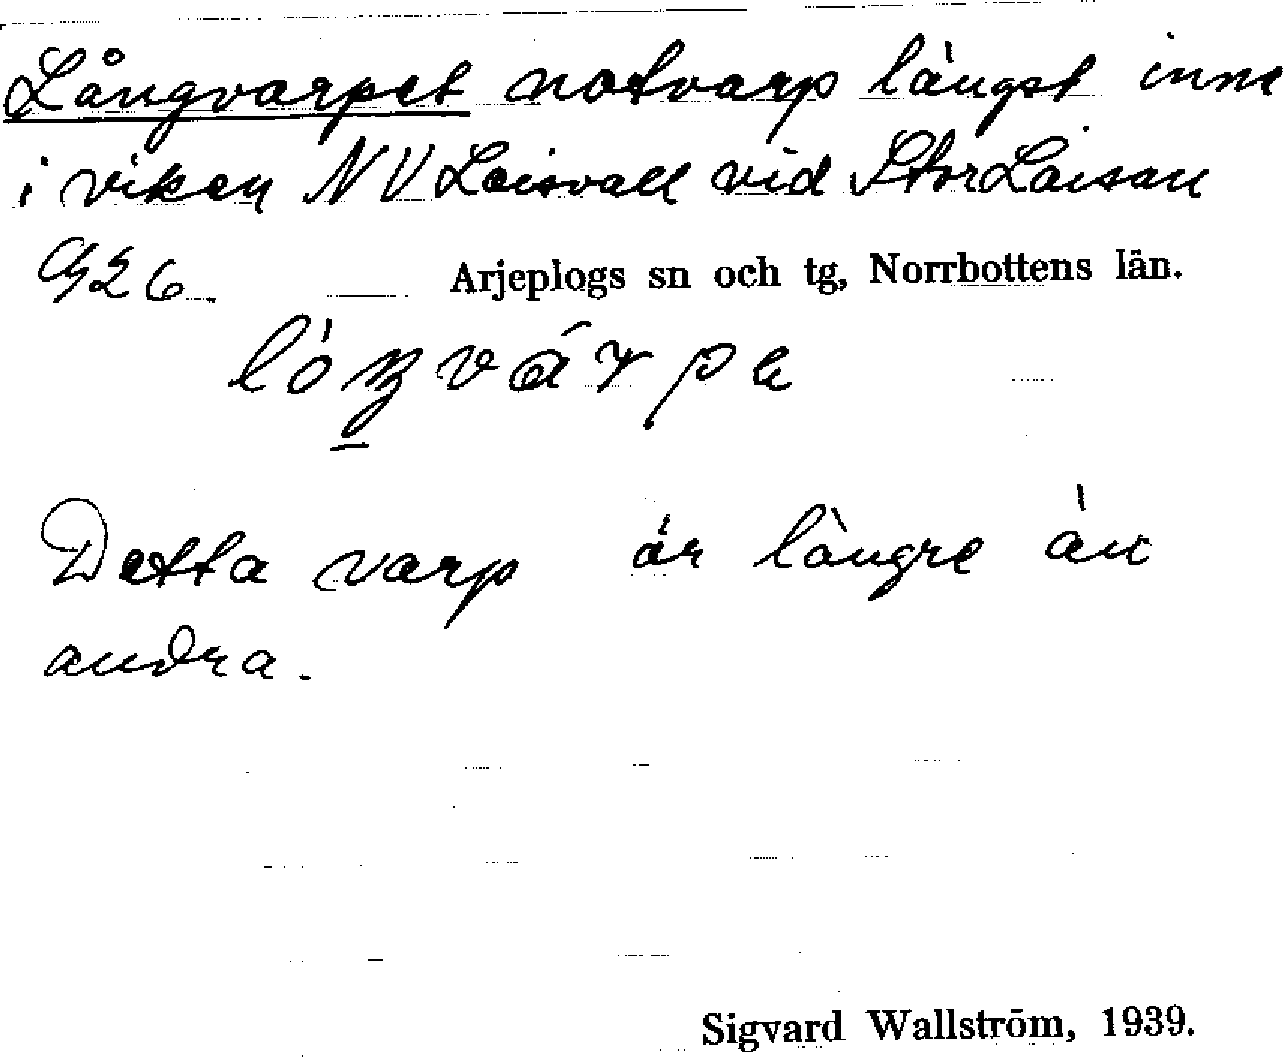 Långvarpet notvarp längst inne
i viken NV Laisvall vid StorLaisan
Arjeplogs sn och tg, Norrbottens län.
Detta varp är längre än
andra.
Sigvard Wallström, 1939.